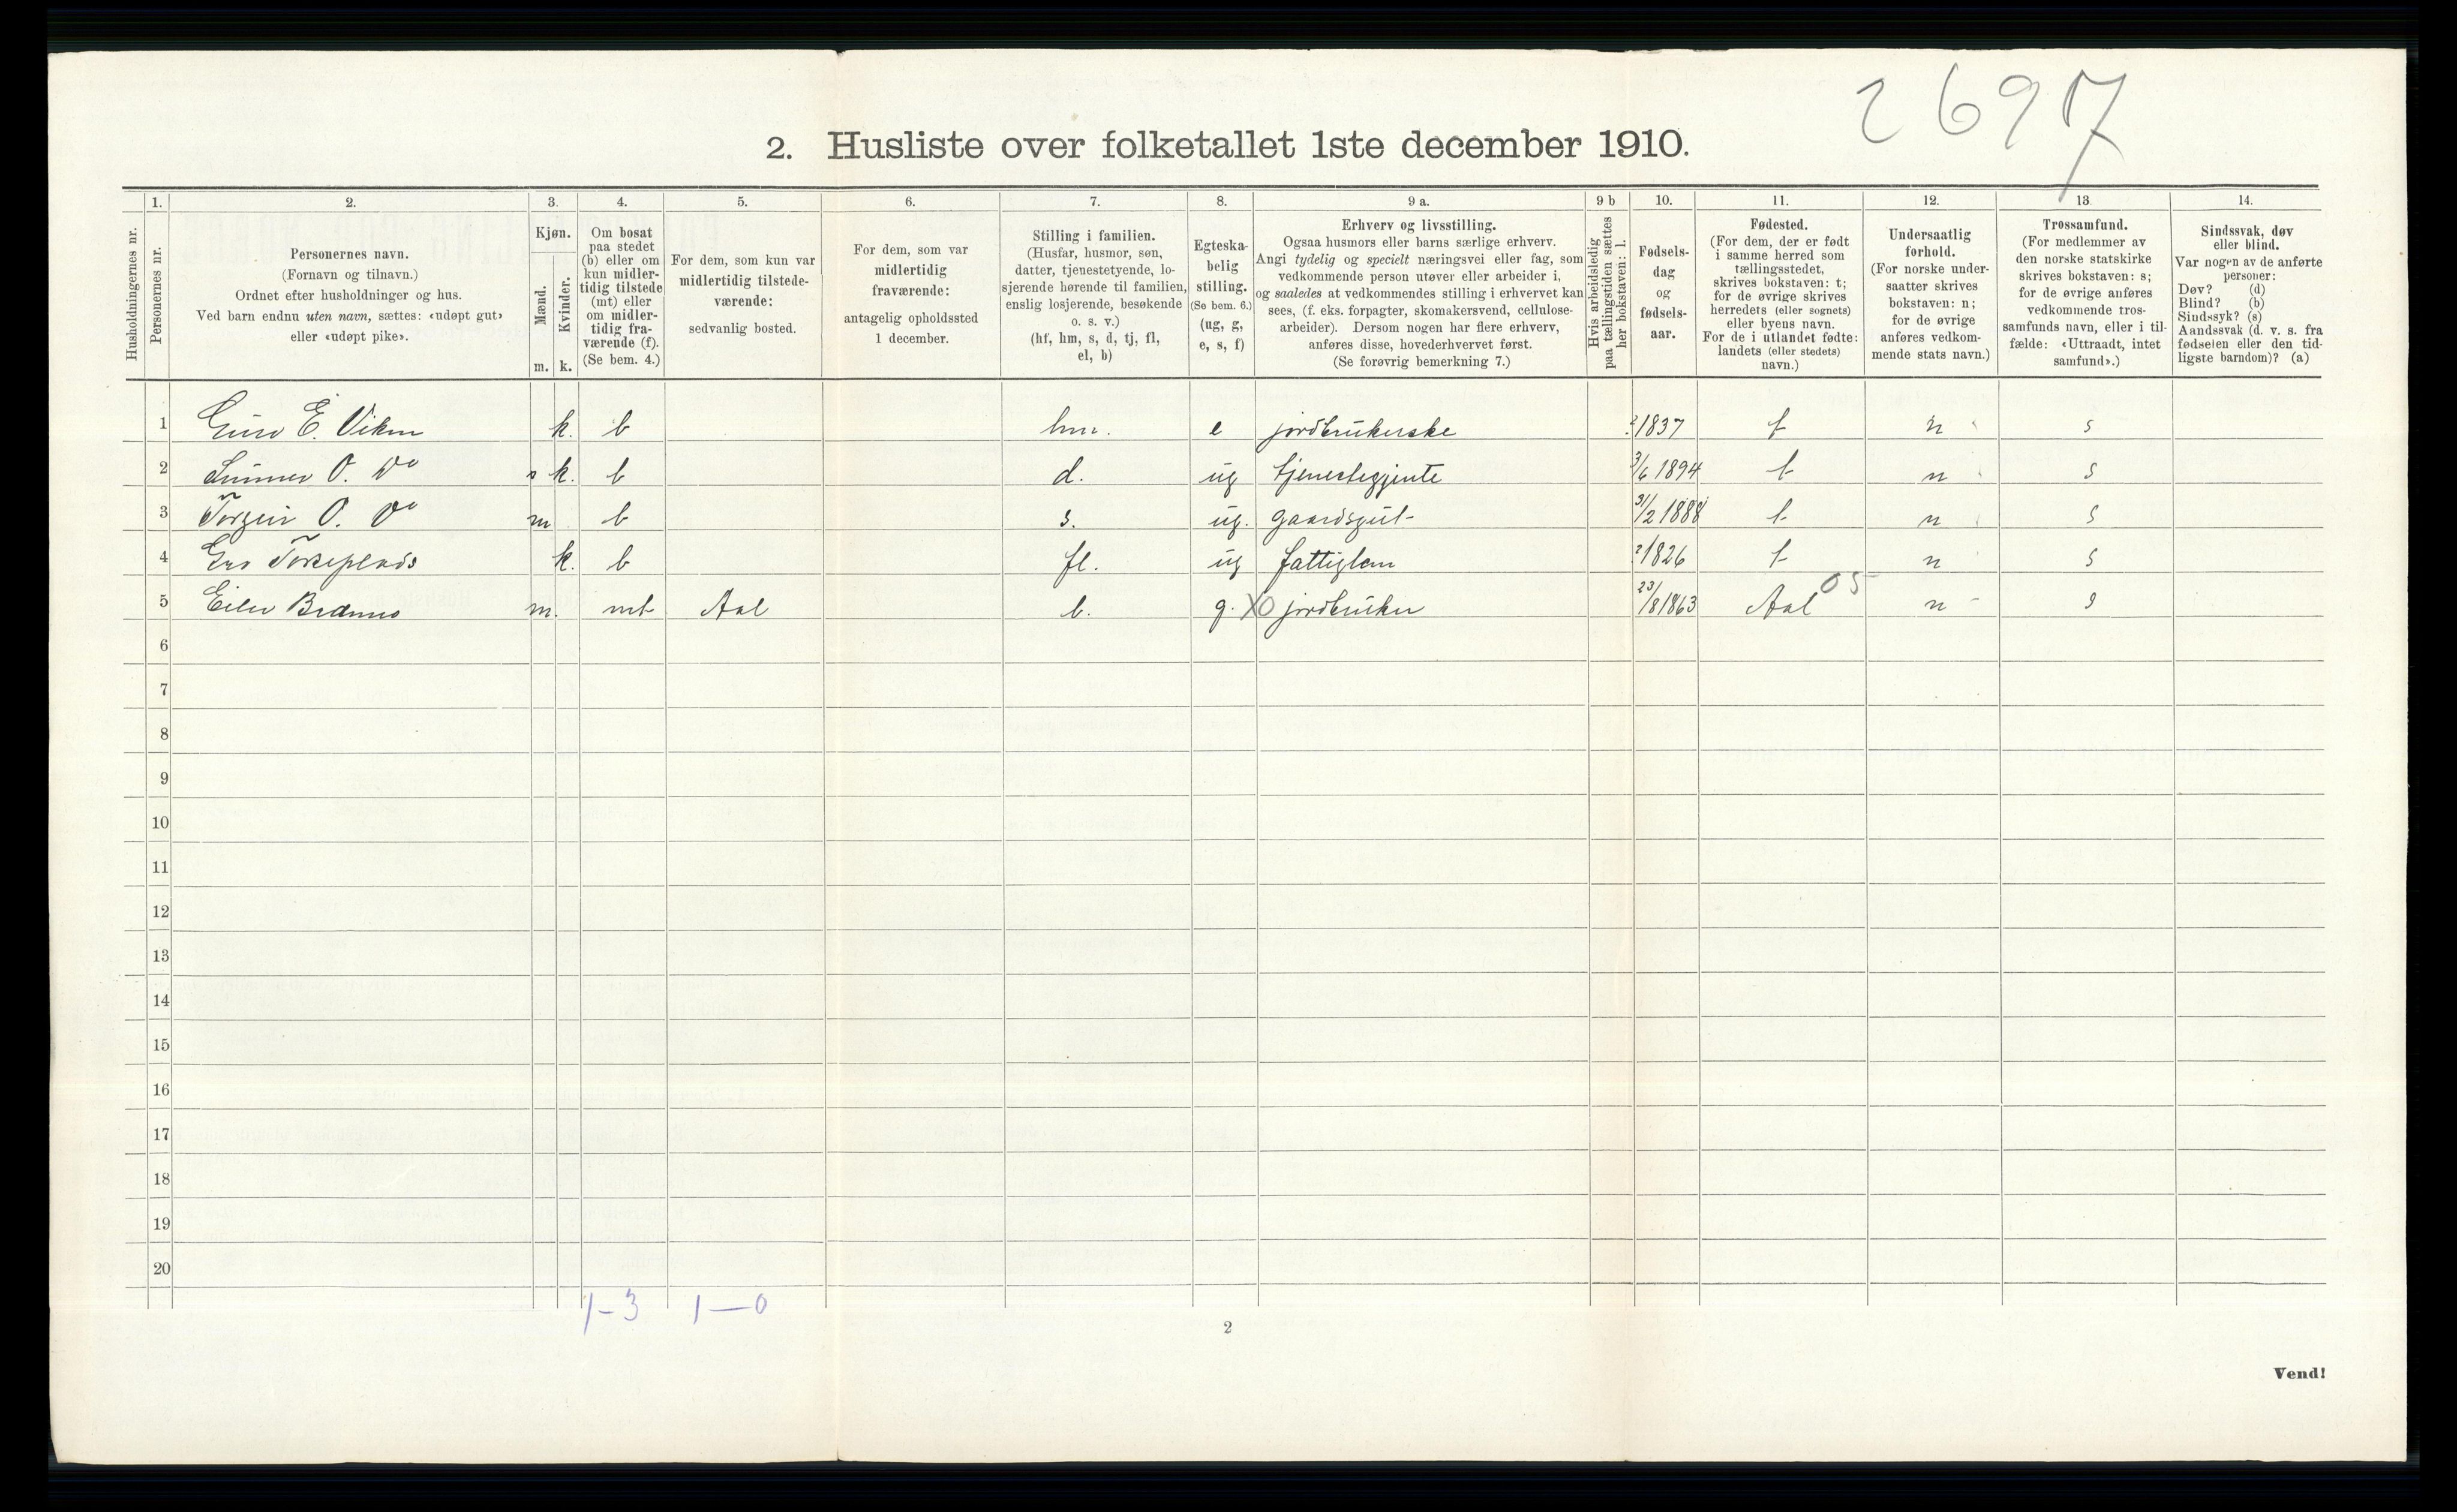 2697
2. Husliste over folketallet 1ste december 1910.
Husholdningernes nr.
1. Personernes nr.
2. Personernes navn.
(Fornavn og tilnavn.)
Ordnet efter husholdninger og hus.
Ved barn endnu uten navn, sættes: «udøpt gut»
eller «udøpt pike».
3. Kjøn.
Mænd. m.
Kvinder. k.
4. Om bosat
paa stedet
(b) eller om
kun midler-
tidig tilstede
(mt) eller
om midler-
tidig fra-
værende (f).
(Se bem. 4.)
5. For dem, som kun var
midlertidig tilstede-
værende:
sedvanlig bosted.
6. For dem, som var
midlertidig
fraværende:
antagelig opholdssted
1 december.
7. Stilling i familien.
(Husfar, husmor, søn,
datter, tjenestetyende, lo-
sjerende hørende til familien,
enslig losjerende, besøkende
o. s. v.)
(hf, hm, s, d, tj, fl,
el, b)
8. Egteska-
belig
stilling.
(Se bem. 6.)
(ug, g,
e, s, f)
9 a. Erhverv og livsstilling.
Ogsaa husmors eller barns særlige erhverv.
Angi tydelig og specielt næringsvei eller fag, som
vedkommende person utøver eller arbeider i,
og saaledes at vedkommendes stilling i erhvervet kan
sees, (f. eks. forpagter, skomakersvend, cellulose-
arbeider). Dersom nogen har flere erhverv,
anføres disse, hovederhvervet først.
(Se forøvrig bemerkning 7.)
9 b Hvis arbeidsledig
paa tællingstiden sættes
her bokstaven: l.
10. Fødsels-
dag
og
fødsels-
aar.
11. Fødested.
(For dem, der er født
i samme herred som
tællingsstedet,
skrives bokstaven: t;
for de øvrige skrives
herredets (eller sognets)
eller byens navn.
For de i utlandet fødte:
landets (eller stedets)
navn.)
12. Undersaatlig
forhold.
(For norske under-
saatter skrives
bokstaven: n;
for de øvrige
anføres vedkom-
mende stats navn.)
13. Trossamfund.
(For medlemmer av
den norske statskirke
skrives bokstaven: s;
for de øvrige anføres
vedkommende tros-
samfunds navn, eller i til-
fælde: «Uttraadt, intet
samfund».)
14. Sindssvak, døv
eller blind.
Var nogen av de anførte
personer:
Døv? (d)
Blind? (b)
Sindssyk? (s)
Aandssvak (d. v. s. fra
fødselen eller den tid-
ligste barndom)? (a)
1 Guro E. Viken k. b hm. e jordbrukerske ? 1837 t n s
2 O. Do k. b d. ug tjenestegjente 3/6 1894 t n s
3 Torgeir O. Do m b s. ug. gaardsgut 31/2 1888 t n s
4 k. b fl. ug fattiglem ? 1826 t n s
5 m. mt Aal b. g. XO jordbruker 23/8 1863 Aal 05 n s
6
7
8
9
10
11
12
13
14
15
16
17
18
19
20
1-3 1-0
2
Vend!